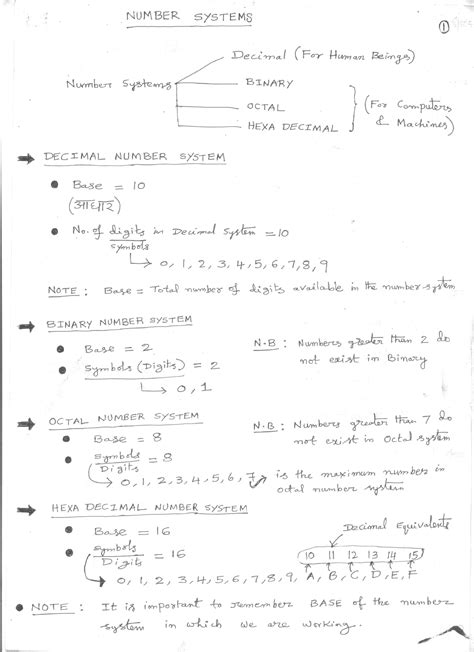 NUMBER SYSTEMS
①
Decimal (For Human Beings)
Number Systems
BINARY
OCTAL
HEXA DECIMAL
(For Computers
& Machines)
→ DECIMAL NUMBER SYSTEM
• Base = 10
(आधार)
• No. of digits in Decimal System = 10
symbols
→ 0, 1, 2, 3, 4, 5, 6, 7, 8, 9
NOTE : Base = Total number of digits available in the number-system
→ BINARY NUMBER SYSTEM
• Base = 2
• Symbols (Digits) = 2
→ 0, 1
N.B : Numbers greater than 2 do
not exist in Binary
→ OCTAL NUMBER SYSTEM
• Base = 8
• Symbols = 8
Digits
→ 0, 1, 2, 3, 4, 5, 6, 7
N.B : Numbers greater than 7 do
not exist in Octal System
is the maximum number in
octal number system
→ HEXA DECIMAL NUMBER SYSTEM
• Base = 16
• Symbols = 16
Digits
Decimal Equivalents
10 11 12 13 14 15
→ 0, 1, 2, 3, 4, 5, 6, 7, 8, 9, A, B, C, D, E, F
• NOTE : It is important to remember BASE of the number
system in which we are working.